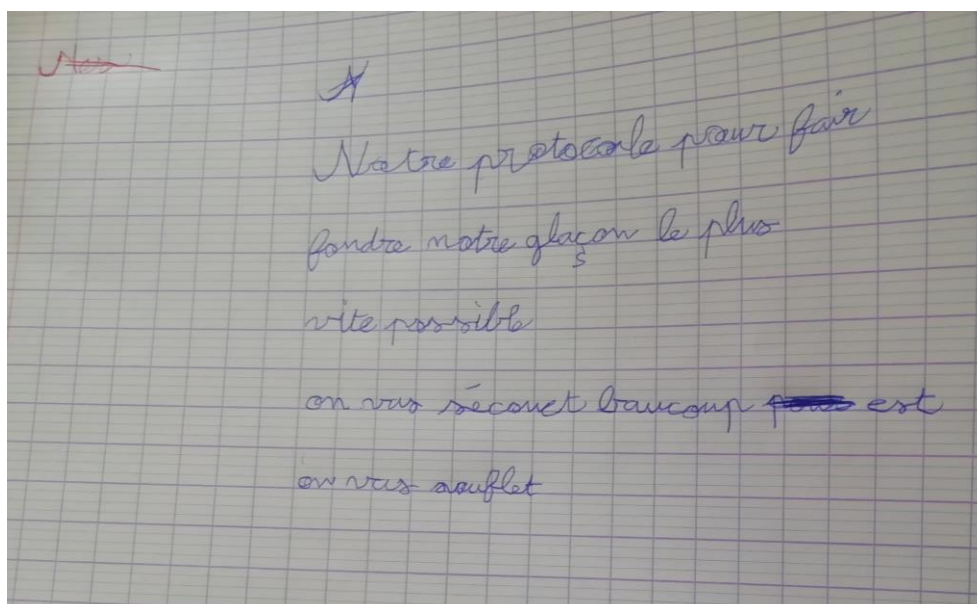 Notre protocole pour fair
fondre notre glaçon le plus
vite possible
on vas sécouet baucoup est
on vas souflet